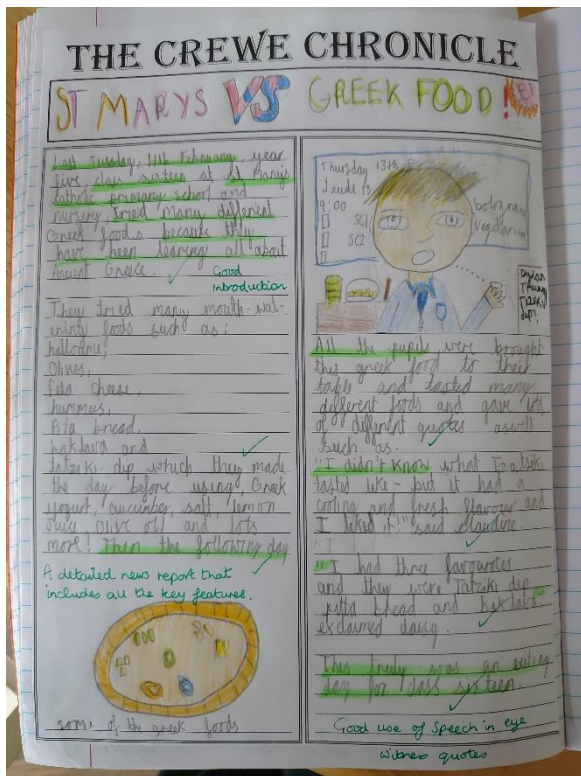 THE CREWE CHRONICLE
ST MARYS VS GREEK FOOD!
Last Tuesday, 11th February, year
five, class sixteen at St Mary's
catholic primary school and
nursery, tried many different
Greek foods because they
have been learning all about
Ancient Greece.
Good
introduction
They tried many mouth-wat-
ering foods such as:
Olives,
feta cheese,
hummus,
Pita bread,
baklava and
tatziki dip which they made
the day before using, Greek
yogurt, cucumber, salt, lemon
juice, olive oil and lots
more! Then the following day
A detailed news report that
includes all the key features.
some of the greek foods
Thursday 13th
9:00
SC1
SC2
bolognaise
vegetarian
All the pupils were brought
this greek food to their
table and tasted many
different foods and gave lots
of different quotes aswell
such as.
"I didn't know what Tzatziki
tasted like - but it had a
cooling and fresh flavour and
I liked it!" said Claudine
"I had three favourotes
and they were Tatziki dip
pitta bread and baklava"
exclaimed daisy.
This truly was an
day for class sixteen.
Good use of speech in eye
witness quotes